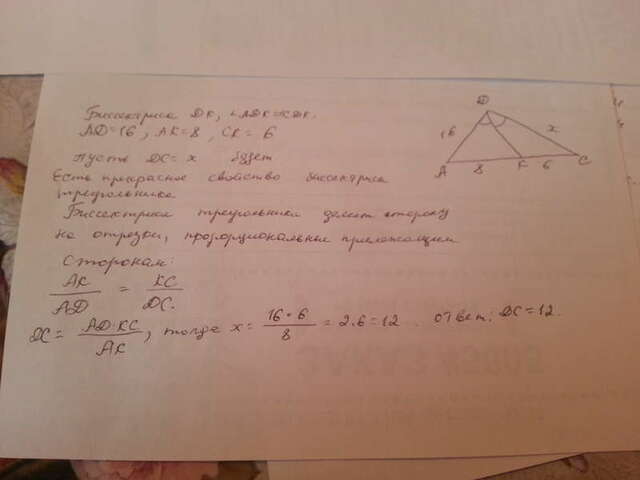 Биссектриса DK, ∠ADK=∠CDK.
AD=16, AK=8, CK=6
Пусть DC=x будет
Есть прекрасное свойство биссектрисы
треугольника
Биссектриса треугольника делит сторону
на отрезки, пропорциональные прилежащим
сторонам:
AK/AD = KC/DC.
DC= AD·KC/AK, тогда x= 16·6/8 = 2·6=12. Ответ: DC=12.
D
16
x
A
8
K
6
C